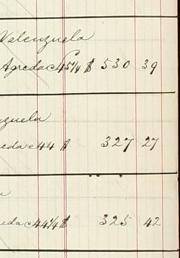 Valenzuela
Agreda c 45¼ $ 530 39
zuela
eda c 44 $ 327 27
a
eda c 44¼ $ 325 42